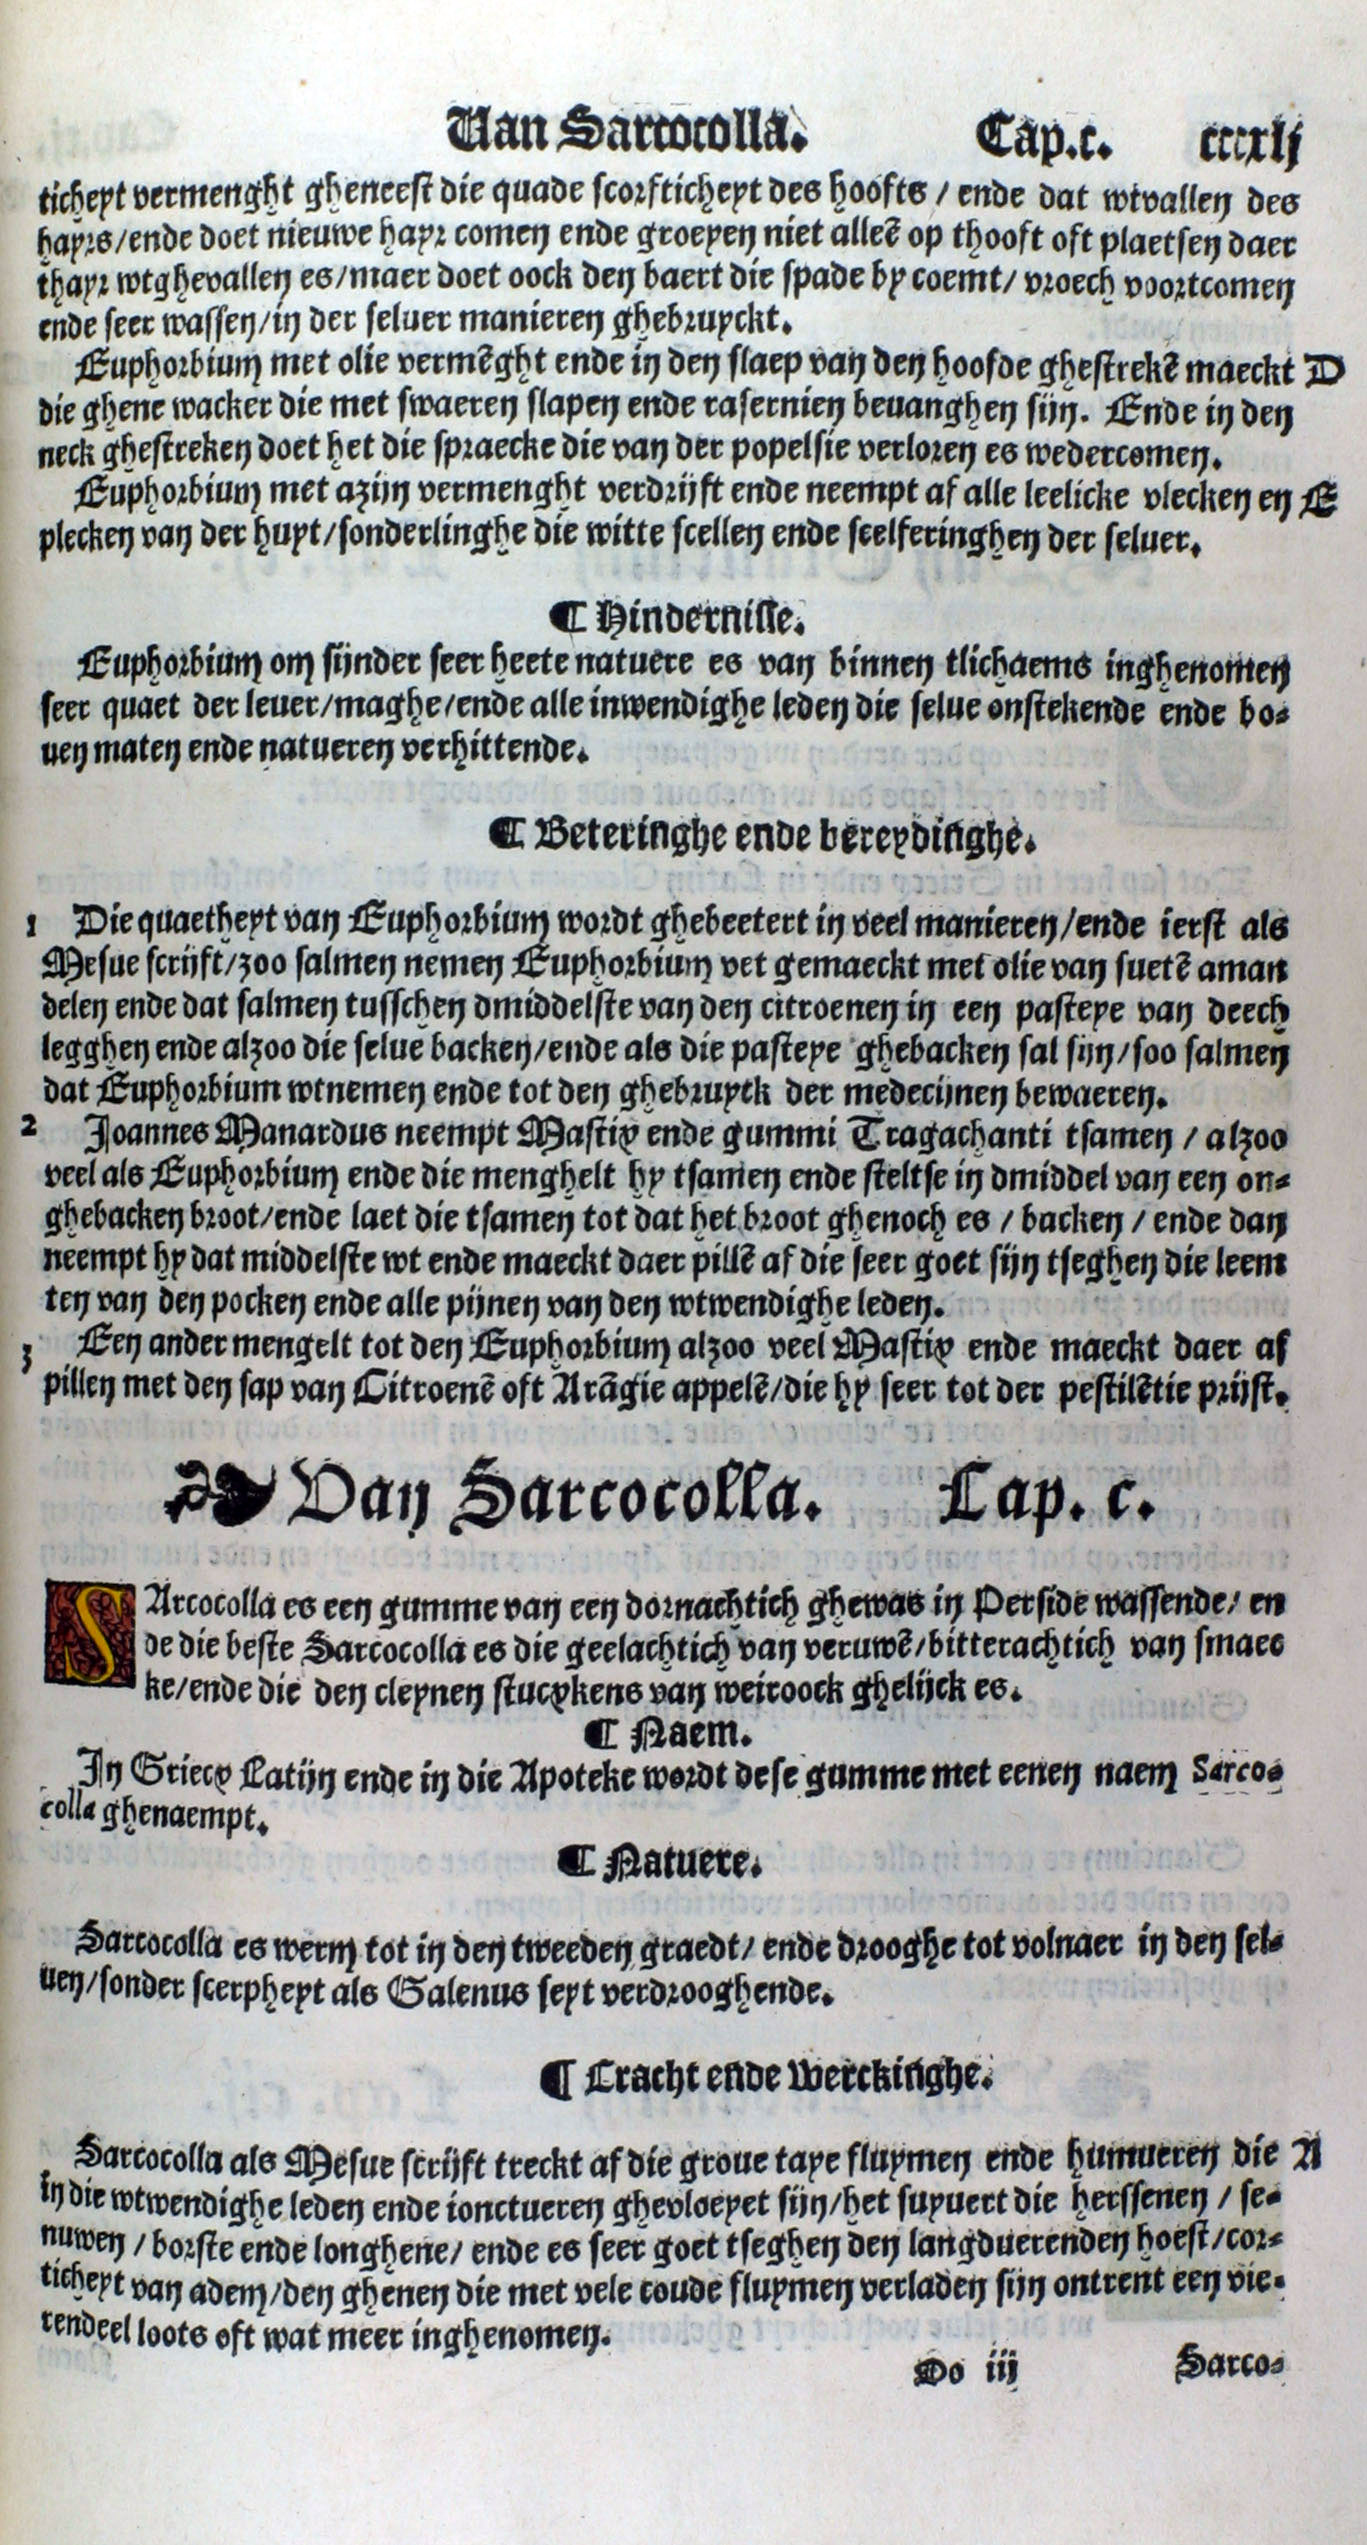 Uan Sarcocolla. Cap.c. cccxlj
ticheyt vermenght gheneest die quade scorfticheyt des hoofts / ende dat wtvallen des
hayrs/ende doet nieuwe hayr comen ende groeyen niet alleē op thooft oft plaetsen daer
thayr wtghevallen es/maer doet oock den baert die spade by coemt/ vroech voortcomen
ende seer wassen/in der seluer manieren ghebruyckt.
Euphorbium met olie vermēght ende in den slaep van den hoofde ghestrekē maeckt D
die ghene wacker die met swaeren slapen ende rasernien beuanghen sijn. Ende in den
neck ghestreken doet het die spraecke die van der popelsie verloren es wedercomen.
Euphorbium met azijn vermenght verdrijft ende neempt af alle leelicke vlecken en E
plecken van der huyt/sonderlinghe die witte scellen ende scelferinghen der seluer.
¶ Hindernisse.
Euphorbium om sijnder seer heete natuere es van binnen tlichaems inghenomen
seer quaet der leuer/maghe/ende alle inwendighe leden die selue onstekende ende bo-
uen maten ende natueren verhittende.
¶ Beteringhe ende bereydinghe.
1 Die quaetheyt van Euphorbium wordt ghebeetert in veel manieren/ende ierst als
Mesue scrijft/zoo salmen nemen Euphorbium vet gemaeckt met olie van suetē aman
delen ende dat salmen tusschen dmiddelste van den citroenen in een pasteye van deech
legghen ende alzoo die selue backen/ende als die pasteye ghebacken sal sijn/soo salmen
dat Euphorbium wtnemen ende tot den ghebruyck der medecijnen bewaeren.
2 Joannes Manardus neempt Mastix ende gummi Tragachanti tsamen / alzoo
veel als Euphorbium ende die menghelt hy tsamen ende steltse in dmiddel van een on-
ghebacken broot/ende laet die tsamen tot dat het broot ghenoch es / backen / ende dan
neempt hy dat middelste wt ende maeckt daer pillē af die seer goet sijn tseghen die leem
ten van den pocken ende alle pijnen van den wtwendighe leden.
3 Een ander mengelt tot den Euphorbium alzoo veel Mastix ende maeckt daer af
pillen met den sap van Citroenē oft Arāgie appelē/die hy seer tot der pestilētie prijst.
Van Sarcocolla. Cap. c.
SArcocolla es een gumme van een dornachtich ghewas in Perside wassende/ en
de die beste Sarcocolla es die geelachtich van veruwē/bitterachtich van smaec
ke/ende die den cleynen stucxkens van weiroock ghelijck es.
¶ Naem.
In Griecx Latijn ende in die Apoteke wordt dese gumme met eenen naem Sarco-
colla ghenaempt.
¶ Natuere.
Sarcocolla es werm tot in den tweeden graedt/ ende drooghe tot volnaer in den sel-
uen/sonder scerpheyt als Galenus seyt verdrooghende.
¶ Cracht ende werckinghe.
Sarcocolla als Mesue scrijft treckt af die groue taye fluymen ende humueren die A
in die wtwendighe leden ende ionctueren ghevloeyet sijn/het suyuert die herssenen / se-
nuwen / borste ende longhene/ ende es seer goet tseghen den langduerenden hoest/cor-
ticheyt van adem/den ghenen die met vele coude fluymen verladen sijn ontrent een vie-
rendeel loots oft wat meer inghenomen.
Oo iij Sarco-